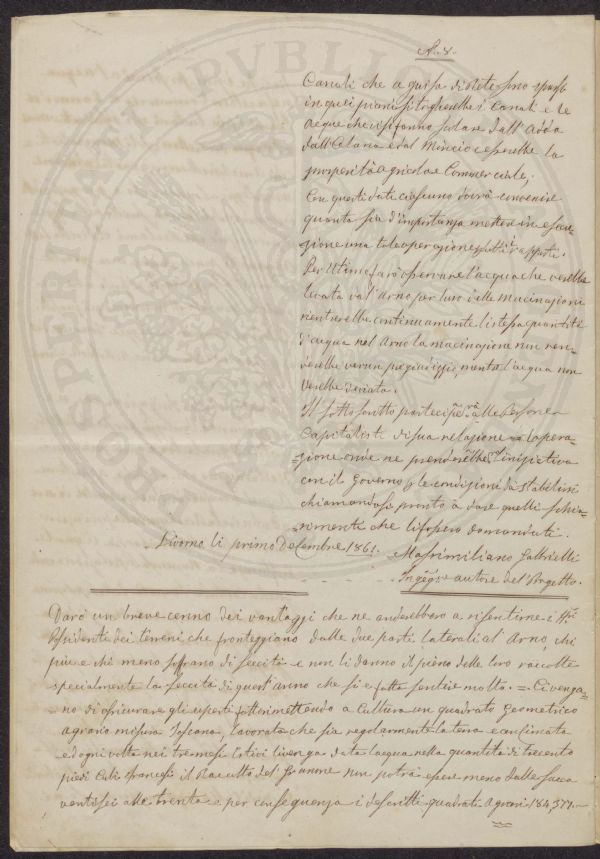 N. 8.
Canali che a guisa di Rete sono sparsi
in quei piani si toglierebbe i Canali e le
Acque che vi si fanno scolare dall'Adda
dall'Olona e dal Mincio cesserebbe la
prosperità agricola e Commerciale;
Con questi dati ciascuno dovrà convenire
quanta sia d'importanza mettere in esecu-
zione una tale operazione sotto i rapporti.
Per Ultimo farò osservare l'acqua che verebbe
levata dal'Arno per luso delle macinazioni
rientrerebbe continuamente l'istessa quantità
d'acqua nel Arno la macinazione non ren-
derebbe verun pregiudizzio, mentre l'acqua non
verebbe deviata.
Il sotto scritto parteciperà alle Persone
Capitalisti di sua relazione lopera-
zione onde ne prenderebbe l'iniziativa
con il Governo le condizioni da stabilirsi
chiamandosi pronto a dare quelli schia-
rimenti che li fossero domandati.
Livorno li primo Decembre 1861.
Massimiliano Gabbrielli
Ingegre autore del Progetto.
Darò un breve cenno dei vantaggi che ne anderebbero a risentirne i Sri
Possidenti dei terreni che fronteggiano dalle due parti laterali al Arno, chi
più e chi meno soffrano di seccità e non li danno il pieno delle loro raccolte
specialmente la seccità di quest'anno che si è fatta sentire molto. = Ci venga-
no di assicurare gli esperti sottomettendo a Cultura un quadrato geometrico
agrario misura Toscana, lavorata che sia regolarmente la terra e concimata
ed ogni volta nei tre mesi Estivi li venga data lacqua nella quantità di trecento
piedi Cubi francesi il Racculto del Granone non potrà essere meno dalle sacca
ventisei alle trenta e per conseguenza i descritti quadrati Agrari 184,377.